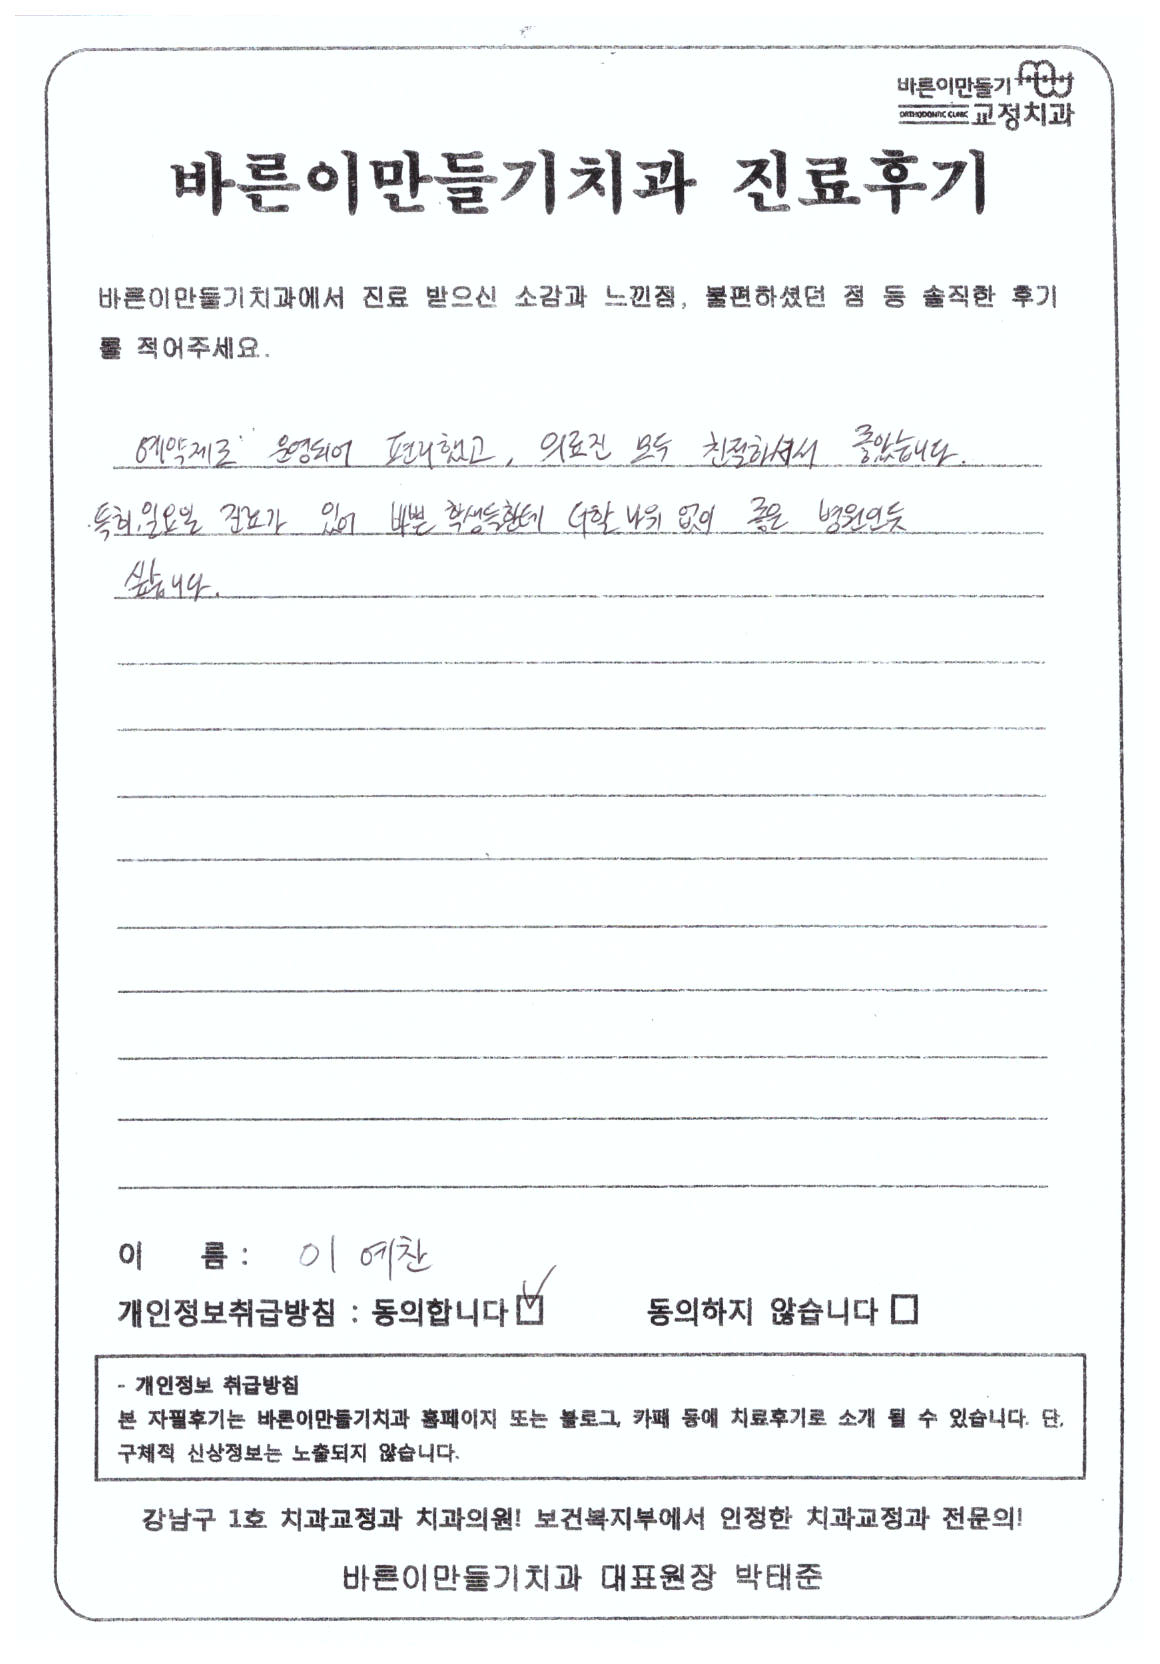 바른이만들기
ORTHODONTIC CLINIC 교정치과
바른이만들기치과 진료후기
바른이만들기치과에서 진료 받으신 소감과 느낀점, 불편하셨던 점 등 솔직한 후기
를 적어주세요.
예약제로 운영되어 편리했고, 의료진 모두 친절하셔서 좋았습니다.
특히 일요일 진료가 있어 바쁜 학생들한테 더할 나위 없이 좋은 병원인듯
싶습니다.
이 름 : 이예찬
개인정보취급방침 : 동의합니다 ☑ 동의하지 않습니다 □
- 개인정보 취급방침
본 자필후기는 바른이만들기치과 홈페이지 또는 블로그, 카페 등에 치료후기로 소개 될 수 있습니다. 단,
구체적 신상정보는 노출되지 않습니다.
강남구 1호 치과교정과 치과의원! 보건복지부에서 인정한 치과교정과 전문의!
바른이만들기치과 대표원장 박태준